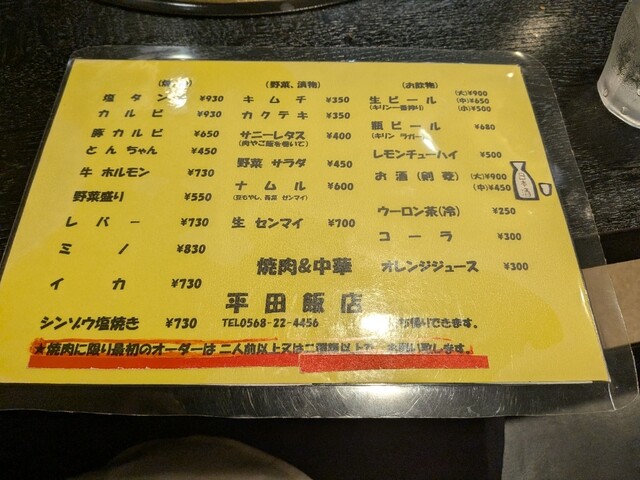 塩タン ¥930
カルビ ¥930
豚カルビ ¥650
とんちゃん ¥450
牛ホルモン ¥730
野菜盛り ¥550
レバー ¥730
ミノ ¥830
イカ ¥730
シンゾウ塩焼き ¥730
(野菜、漬物)
キムチ ¥350
カクテキ ¥350
サニーレタス ¥400
(肉やご飯を巻いて)
野菜サラダ ¥450
ナムル ¥600
(豆もやし、青菜 ゼンマイ)
生センマイ ¥700
(お飲物)
生ビール (大)¥900
(キリン一番搾り) (中)¥650
(小)¥500
瓶ビール ¥680
(キリン ラガー)
レモンチューハイ ¥500
お酒(剣菱) (大)¥900
(中)¥450
日本酒
ウーロン茶(冷) ¥250
コーラ ¥300
オレンジジュース ¥300
焼肉&中華
平田飯店
TEL0568-22-4456
りできます。
★焼肉に限り最初のオーダーは二人前以上又は二種類以上で 願い致します。